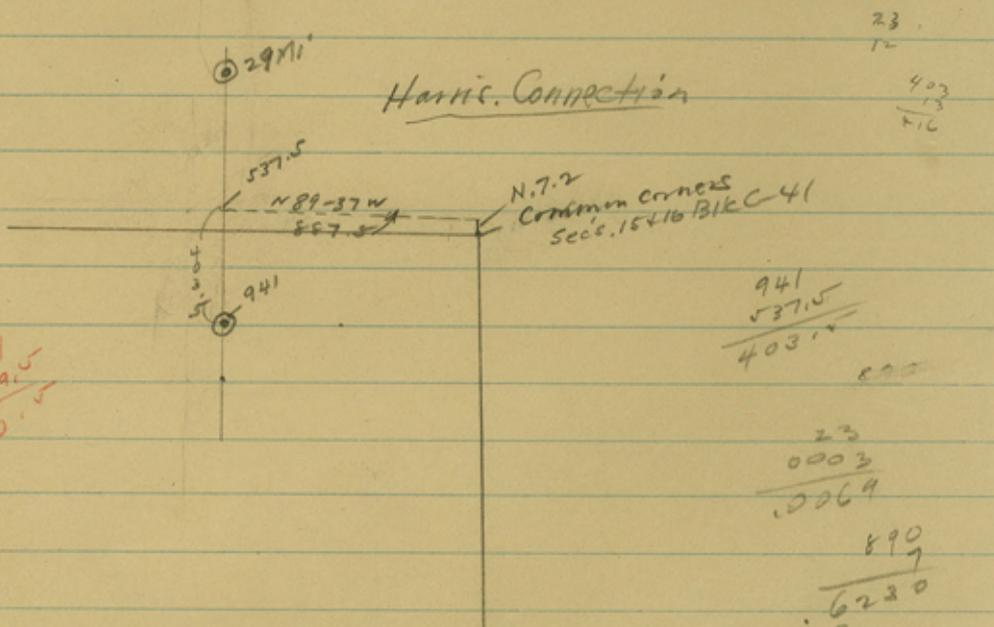 23
12
29 Mi
Harris. Connection
403
13
416
537.5
N 89-37 W
887.5
N.7.2
Common corners
Sec's. 15+16 Blk C-41
403.5
941
941
537.5
403.5
890
23
0003
.0069
890
7
.6230